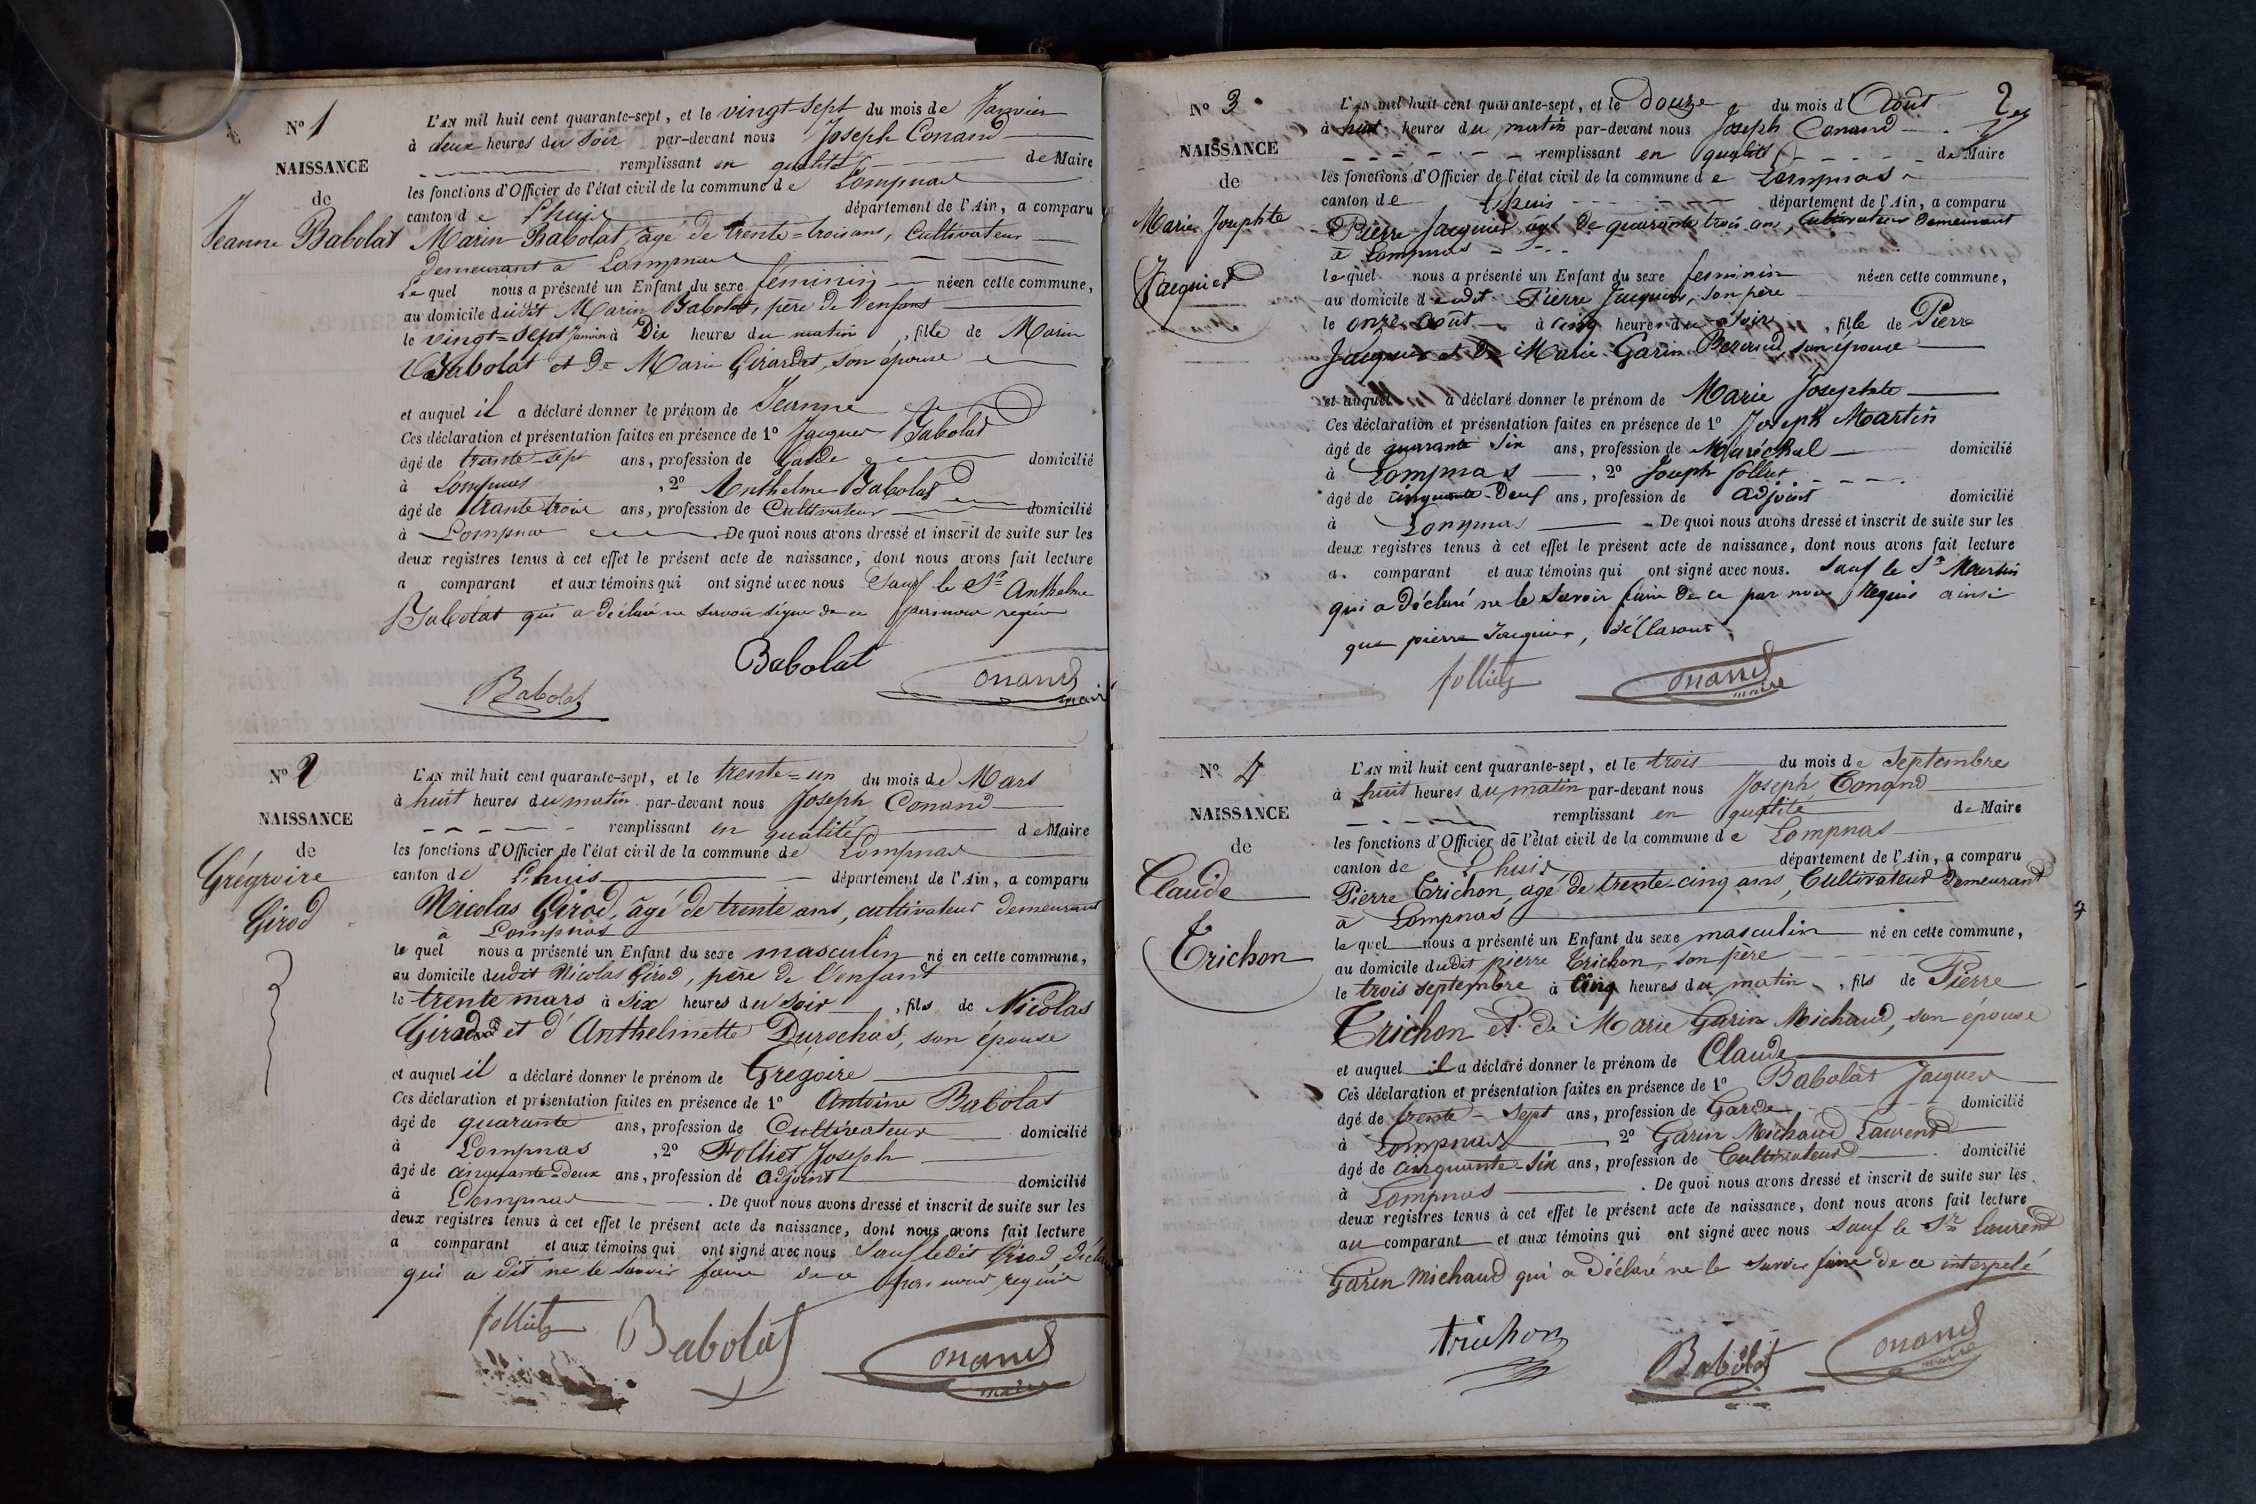 N° 1
NAISSANCE
de
Jeanne Babolat
L'AN mil huit cent quarante-sept, et le vingt-sept du mois de Janvier
à deux heures du soir par-devant nous Joseph Conand
remplissant en qualité de Maire
les fonctions d'Officier de l'état civil de la commune de Lompnas
canton de Lhuis département de l'Ain, a comparu
Marin Babolat, âgé de trente-trois ans, Cultivateur
demeurant à Lompnas
Le quel nous a présenté un Enfant du sexe féminin née en cette commune,
au domicile dudit Marin Babolat, père de l'enfant
le vingt-sept Janvier à Dix heures du matin, fille de Marin
Babolat et de Marie Girardet, son épouse
et auquel il a déclaré donner le prénom de Jeanne
Ces déclaration et présentation faites en présence de 1° Jacques Babolat
âgé de trente-sept ans, profession de Garde domicilié
à Lompnas, 2° Anthelme Babolat
âgé de trante trois ans, profession de Cultivateur domicilié
à Lompnas. De quoi nous avons dressé et inscrit de suite sur les
deux registres tenus à cet effet le présent acte de naissance, dont nous avons fait lecture
a comparant et aux témoins qui ont signé avec nous Sauf le Sr Anthelme
Babolat qui a déclaré ne savoir signer de ce par nous requis
Babolat
Babolat
Conand
maire
N° 2
NAISSANCE
de
Grégroire
Girod
L'AN mil huit cent quarante-sept, et le trente-un du mois de Mars
à huit heures du matin par-devant nous Joseph Conand
remplissant en qualité de Maire
les fonctions d'Officier de l'état civil de la commune de Lompnas
canton de Lhuis département de l'Ain, a comparu
Nicolas Girod, âgé de trente ans, cultivateur demeurant
à Lompnas
le quel nous a présenté un Enfant du sexe masculin né en cette commune,
au domicile dudit Nicolas Girod, père de l'enfant
le trente mars à six heures du soir, fils de Nicolas
Girod et d'Anthelmette Durochas, son épouse
et auquel il a déclaré donner le prénom de Grégoire
Ces déclaration et présentation faites en présence de 1° Antoine Babolat
âgé de quarante ans, profession de Cultivateur domicilié
à Lompnas, 2° Folliet Joseph
âgé de cinquante-deux ans, profession de adjoint domicilié
à Lompnas. De quoi nous avons dressé et inscrit de suite sur les
deux registres tenus à cet effet le présent acte de naissance, dont nous avons fait lecture
a comparant et aux témoins qui ont signé avec nous Sauf ledit Girod
qui a dit ne le savoir faire de ce par nous requis
folliet
Babolat
Conand
maire
2
N° 3
NAISSANCE
de
Marie Josephte
Jacquier
L'AN mil huit cent quarante-sept, et le douze du mois d'Août
à huit heures du matin par-devant nous Joseph Conand
remplissant en qualité de Maire
les fonctions d'Officier de l'état civil de la commune de Lompnas
canton de Lhuis département de l'Ain, a comparu
Pierre Jacquier âgé de quarante trois ans, Cultivateur demeurant
à Lompnas
lequel nous a présenté un Enfant du sexe feminin née en cette commune,
au domicile dudit Pierre Jacquier, son père
le onze Août à cinq heures du soir, fille de Pierre
Jacquier et de Marie Garin Beroud, son épouse
et auquel a déclaré donner le prénom de Marie Josephte
Ces déclaration et présentation faites en présence de 1° Joseph Martin
âgé de quarante six ans, profession de Maréchal domicilié
à Lompnas, 2° Joseph folliet
âgé de cinquante-deux ans, profession de adjoint domicilié
à Lompnas. De quoi nous avons dressé et inscrit de suite sur les
deux registres tenus à cet effet le présent acte de naissance, dont nous avons fait lecture
a comparant et aux témoins qui ont signé avec nous. Sauf le Sr Martin
qui a déclaré ne le savoir faire de ce par nous Requis ainsi
que pierre Jacquier, déclarant
folliet
Conand
maire
N° 4
NAISSANCE
de
Claude
Trichon
L'AN mil huit cent quarante-sept, et le trois du mois de Septembre
à huit heures du matin par-devant nous Joseph Conand
remplissant en qualité de Maire
les fonctions d'Officier de l'état civil de la commune de Lompnas
canton de Lhuis département de l'Ain, a comparu
Pierre Trichon, âgé de trente-cinq ans, Cultivateur demeurant
à Lompnas
le quel nous a présenté un Enfant du sexe masculin né en cette commune,
au domicile dudit pierre Trichon, son père
le trois septembre à cinq heures du matin, fils de Pierre
Trichon et de Marie Garin Michaud, son épouse
et auquel il a déclaré donner le prénom de Claude
Ces déclaration et présentation faites en présence de 1° Babolat Jacques
âgé de trente-sept ans, profession de Garde domicilié
à Lompnas 2° Garin Michaud Laurend
âgé de cinquante-six ans, profession de Cultivateur domicilié
à Lompnas. De quoi nous avons dressé et inscrit de suite sur les
deux registres tenus à cet effet le présent acte de naissance, dont nous avons fait lecture
au comparant et aux témoins qui ont signé avec nous sauf le Sr Laurend
Garin Michaud qui a déclaré ne le savoir faire de ce interpelé
trichon
Babolat
Conand
maire